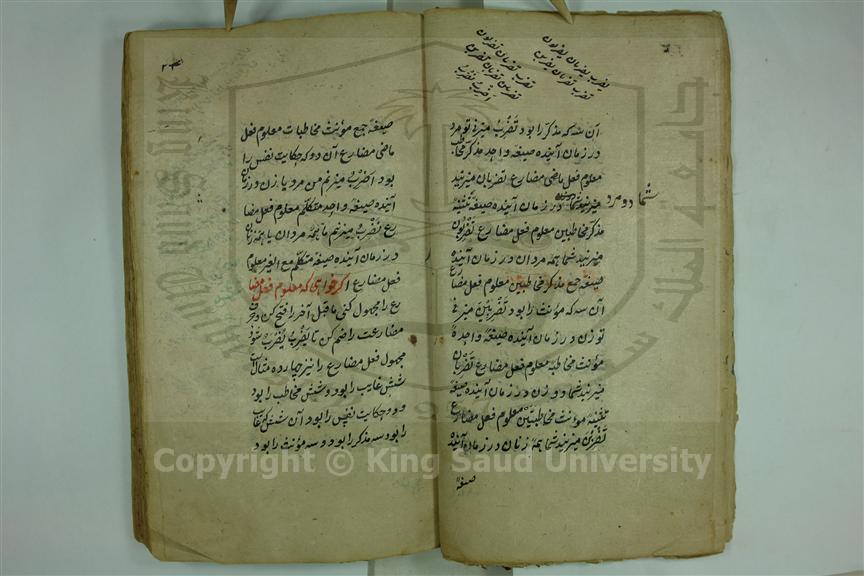 یضرب یضربان یضربون
تضرب تضربان یضربن
تضرب تضربان تضربون
تضربین تضربان تضربن
اضرب نضرب
آن سه که مذکر را بود تَضْرِبُ میزنی تو مرد
در زمان آینده صیغه واحد مذکر مخاطب
معلوم فعل ماضی مضارع تضربان میزنید
میزنید شما در زمان آینده صیغه تثنیه
شما دو مرد
مذکر مخاطبین معلوم فعل مضارع تضربون
میزنید شما همه مردان در زمان آینده
صیغه جمع مذکر مخاطبین معلوم فعل مضارع
آن سه که مؤنث را بود تضربین میزنی
تو زن در زمان آینده صیغه واحده
مؤنث مخاطبه معلوم فعل مضارع تضربان
میزنید شما دو زن در زمان آینده صیغه
تثنیه مؤنث مخاطبتین معلوم فعل مضارع
تضربن میزنید شما همه زنان در زمان آینده
صیغه
صیغه جمع مؤنث مخاطبات معلوم فعل
ماضی مضارع آن دو که حکایت نفس را
بود اَضْرِبُ میزنم من مرد یا زن در زمان
آینده صیغه واحد متکلم معلوم فعل مضا
رع نَضْرِبُ میزنیم ما همه مردان یا همه زنان
در زمان آینده صیغه متکلم مع الغیر معلوم
فعل مضارع اگر خواهی که معلوم فعل مضا
رع را مجهول کنی ماقبل آخر را فتح کن و حرف
مضارعت را ضم کن تا یَضْرِبُ یُضْرَبُ شود
مجهول فعل مضارع را نیز چهارده مثال است
شش غایب را بود و شش مخاطب را بود
و دو حکایت نفس را بود آن شش که غایب
را بود سه مذکر را بود و سه مؤنث را بود
Copyright © King Saud University
King Saud University
جامعة الملك سعود